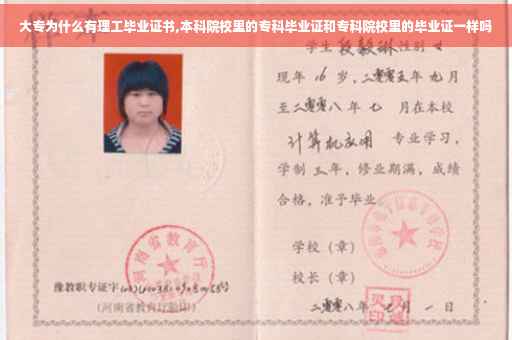 大专为什么有理工毕业证书,本科院校里的专科毕业证和专科院校里的毕业证一样吗
学生段毅琳性别女
现年16岁，二零零五年九月
至二零零八年七月在本校
计算机应用 专业学习，
学制三年，修业期满，成绩
合格，准予毕业
学校（章）
校长（章）
二零零八年七月一日
河南省教育厅
豫教职专证字
（河南省教育厅验印）